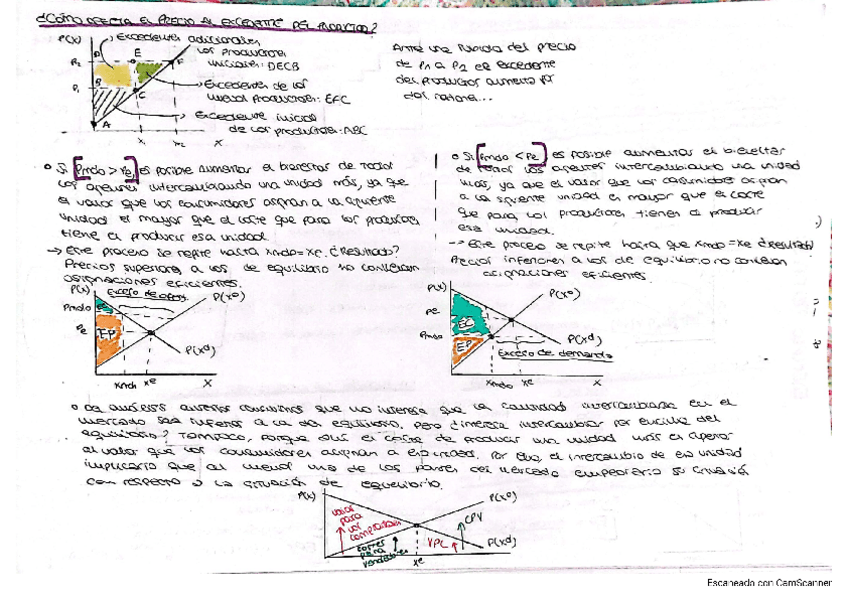 ¿Cómo afecta el precio al excedente del productor?
P(X)
Excedentes adicionales
los productores
iniciales: DECB
Excedentes de los
nuevos productores: EFC
Excedente inicial
de los productores: ABC
D
E
F
P2
B
P1
C
A
X1
X2
X
Ante una subida del precio
de P1 a P2 el excedente
del productor aumenta por
dos razones...
Si Pmdo > Pe, es posible aumentar el bienestar de todos
los agentes intercambiando una unidad más, ya que
el valor que los consumidores asignan a la siguiente
unidad es mayor que el coste que para los productores
tiene el producir esa unidad.
→ Este proceso se repite hasta Xmdo=Xe. ¿Resultado?
Precios superiores a los de equilibrio no conllevan
asignaciones eficientes.
Si Pmdo < Pe es posible aumentar el bienestar
de todos los agentes intercambiando una unidad
más, ya que el valor que los consumidores asignan
a la siguiente unidad es mayor que el coste
que para los productores tienen el producir
esa unidad.
-> Este proceso se repite hasta que Xmdo=Xe ¿Resultado?
Precios inferiores a los de equilibrio no conllevan
asignaciones eficientes.
P(X)
Exceso de oferta
P(Xo)
Pmdo
EC
Pe
EP
P(Xd)
Xmdo
Xe
X
P(X)
P(Xo)
Pe
EC
Pmdo
EP
P(Xd)
Exceso de demanda
Xmdo
Xe
X
mercado sea inferior a la del equilibrio, pero ¿interesa intercambiar por encima del
equilibrio? Tampoco, porque ahí el coste de producir una unidad más es superior
al valor que los consumidores asignan a esa unidad. Por ello, el intercambio de esa unidad
implicaría que al menos una de las partes del mercado empeoraría su situación
con respecto a la situación de equilibrio.
P(X)
P(Xo)
valor
para
los
compradores
CPV
costes
para
vendedores
VPC
P(Xd)
Xe
X
Escaneado con CamScanner